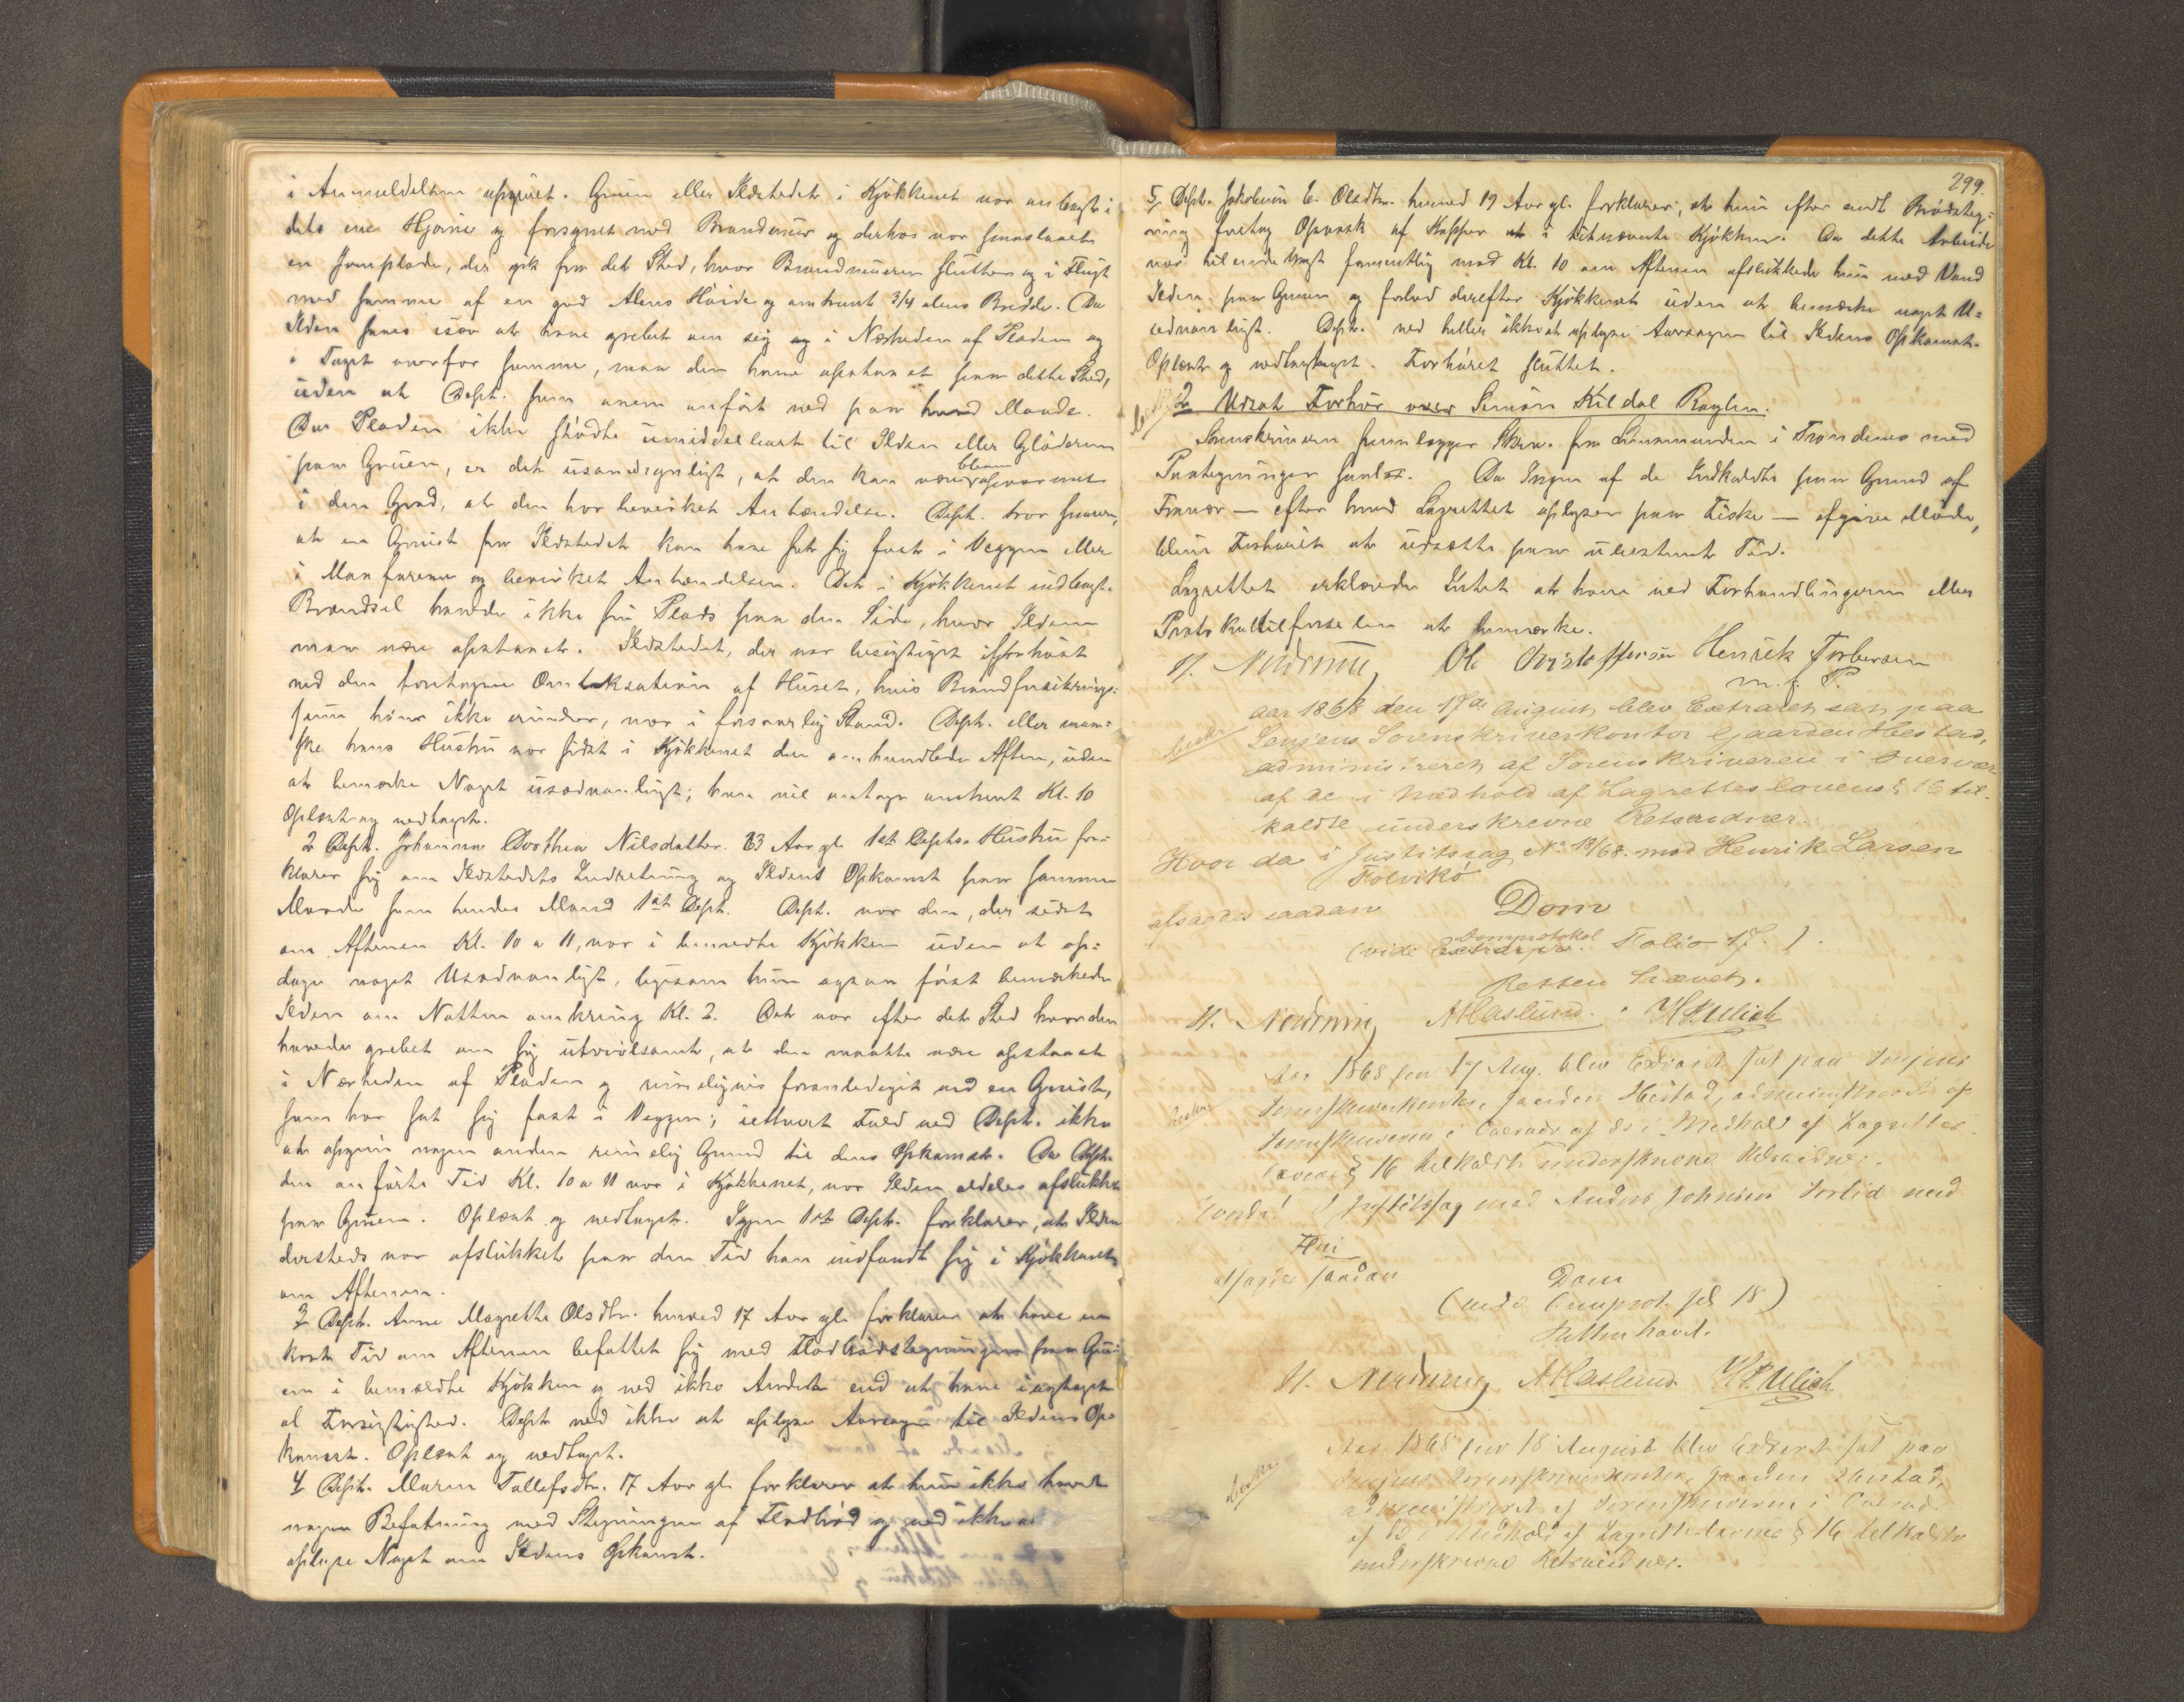 i Anmeldelsen opgivet. Gruen eller Ildstedet i Kjøkkenet var anbragt i
dets ene Hjørne og forsynet med Brandmuur og derhos var paaslaaet
en Jernplade, der gik fra det Sted, hvor Brandmuuren sluttes og i Flugt
med samme af en god Alens Høide og omtrent 3/4 alens Bredde. Da
Ilden synes især at have grebet om sig i Nærheden af Pladen og
i Taget ovenfor samme, maa den have opstaaet paa dette Sted,
uden at Dept. kan anse anført ved paa hvad Maade.
Da Pladen ikke stødte umiddelbart til Ilden eller Gløderne
paa Gruen, er det usandsynligt, at den kan være bleven opvarmet
i den Grad, at den har bevirket Antændelse. Dept. tror snarere,
at en Gnist fra Ildstedet kan have sat sig fast i Veggen eller
i Mosefarene og bevirket Antændelsen. Det i Kjøkkenet indbragte
Brændsel havde ikke sin Plads paa den Side, hvor Ilden
maa være opstaaet. Ildstedet, der var besigtiget ifjorhøst
ved den foretagne Omtaksation af Huset, hvis Brandforsikrings-
sum han ikke erindrer, var i forsvarlig Stand. Dept. eller maa-
ske hans Hustru var sidst i Kjøkkenet den omhandlede Aften, uden
at bemærke Noget usædvanligt; han vil antage omtrent Kl. 10
Oplæst og vedtaget.
2 Dept. Johanna Dorthea Nilsdatter. 33 Aar gl. 1ste Depts. Hustru for-
klarer sig om Ildstedets Indretning og Ildens Opkomst paa samme
Maade som hendes Mand 1ste Dept. Dept. var den, der sidst
om Aftenen Kl. 10 a 11, var i bemeldte Kjøkken uden at op-
dage noget Usædvanligt, ligesom hun ogsaa først bemærkede
Ilden om Natten omkring Kl. 2. Det var efter det Sted hvor den
havde grebet om sig utvivlsomt, at den maatte være opstaaet
i Nærheden af Pladen og rimeligvis foranlediget ved en Gnist,
som har sat sig fast i Veggen; iethvert Fald ved Dept. ikke
at opgive nogen anden rimelig Grund til dens Opkomst. Da Dept.
den anførte Tid Kl. 10 a 11 var i Kjøkkenet, var Ilden aldeles afslukket
paa Gruen. Oplæst og vedtaget. Igjen 1ste Dept. forklarer, at Ilden
dersteds var afslukket paa den Tid han indfandt sig i Kjøkkenet
om Aftenen.
3 Dept. Anne Magrethe Olsdtr. henved 17 Aar gl. forklarer at have en
kort Tid om Aftenen befattet sig med Fladbrødstegningen paa Gru-
en i bemeldte Kjøkken og ved ikke Andet end at have iagttaget
al Forsigtighed. Dept. ved ikke at oplyse Aarsagen til Ildens Op-
komst. Oplæst og vedtaget.
4 Dept. Maren Tollefsdtr. 17 Aar gl. forklarer at hun ikke havde
nogen Befatning med Stegningen af Fladbrød og ved ikke at
oplyse Noget om Ildens Opkomst.
299.
5 Dept. Jakobine E. Olsdtr. henved 19 Aar gl. forklarer, at hun efter endt Brødsteg-
ning foretog Opvask af Kopper i bemeldte Kjøkken. Da dette Arbeide
var tilendebragt formentlig mod Kl. 10 om Aftenen afslukkede hun med Vand
Ilden paa Gruen og forlod derefter Kjøkkenet uden at bemærke noget U-
sædvanligt. Dept. ved heller ikke at oplyse Aarsagen til Ildens Opkomst.
Oplæst og vedtaget. Forhøret sluttet.
2 Udsat Forhør over Simon Kildal Røglen.
Sorenskriveren fremlægger Skriv. fra Lensmanden i Trondenes med
Paategninger. Da Ingen af de Indkaldte paa Grund af
Fravær — efter hvad Lagrettet oplyser paa Fiske — afgive Møde,
blev Forhøret at udsætte paa ubestemt Tid.
Lagrettet erklærede Intet at have ved Forhandlingerne eller
Protokoltilførselen at bemærke.
H. Nordrum Ole Kristoffersen Henrik Torbersen
m. f. P.
beskr. aar 1868 den 17de August blev Extraret sat paa
Senjens Sorenskriverkontor Gaarden Hestad,
administreret af Sorenskriveren i Overvær
af de i Medhold af Lagretteslovens § 16 til-
kaldte underskrevne Retsvidner.
Hvor da i Justitssag No 18/68. mod Henrik Larsen
Tolvikø
afsagdes saadan Dom
(vide Domprotokol Folio 17.).
Retten hævet.
H. Nordrum AHaslund. HRUlich
beskr. Aar 1868 den 17 Aug. blev Extraret sat paa Senjens
Sorenskriverkontor, Gaarden Hestad, administreret af
Sorenskriveren i Overvær af de i Medhold af Lagrettes-
lovens § 16 tilkaldte underskrevne Retsvidner.
Hvorda! I Justitssag mod Anders Johnsen
afsagdes saadan Dom
(vide Domprot. fol 18)
Retten hævet.
H. Nordrum AHaslund HRUlich
beskr. Aar 1868 den 18 August blev Extraret sat paa
Senjens Sorenskriverkontor, Gaarden Hestad,
administreret af Sorenskriveren i Overvær
af de i Medhold af Lagretteslovens § 16 tilkaldte
underskrevne Retsvidner.